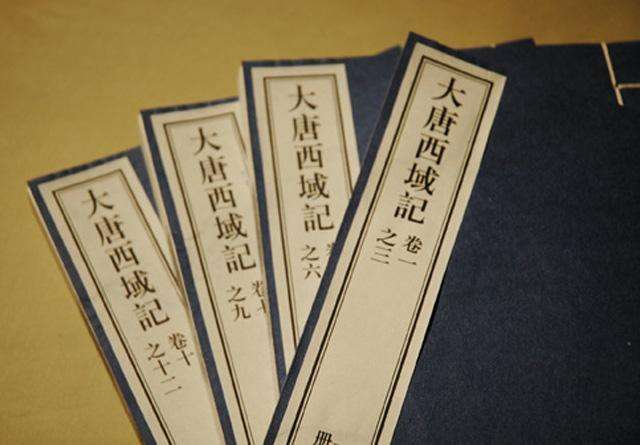 大唐西域記
卷一
之三
冊
大唐西域記
之六
大唐西域記
卷
之九
大唐西域記
卷十
之十二